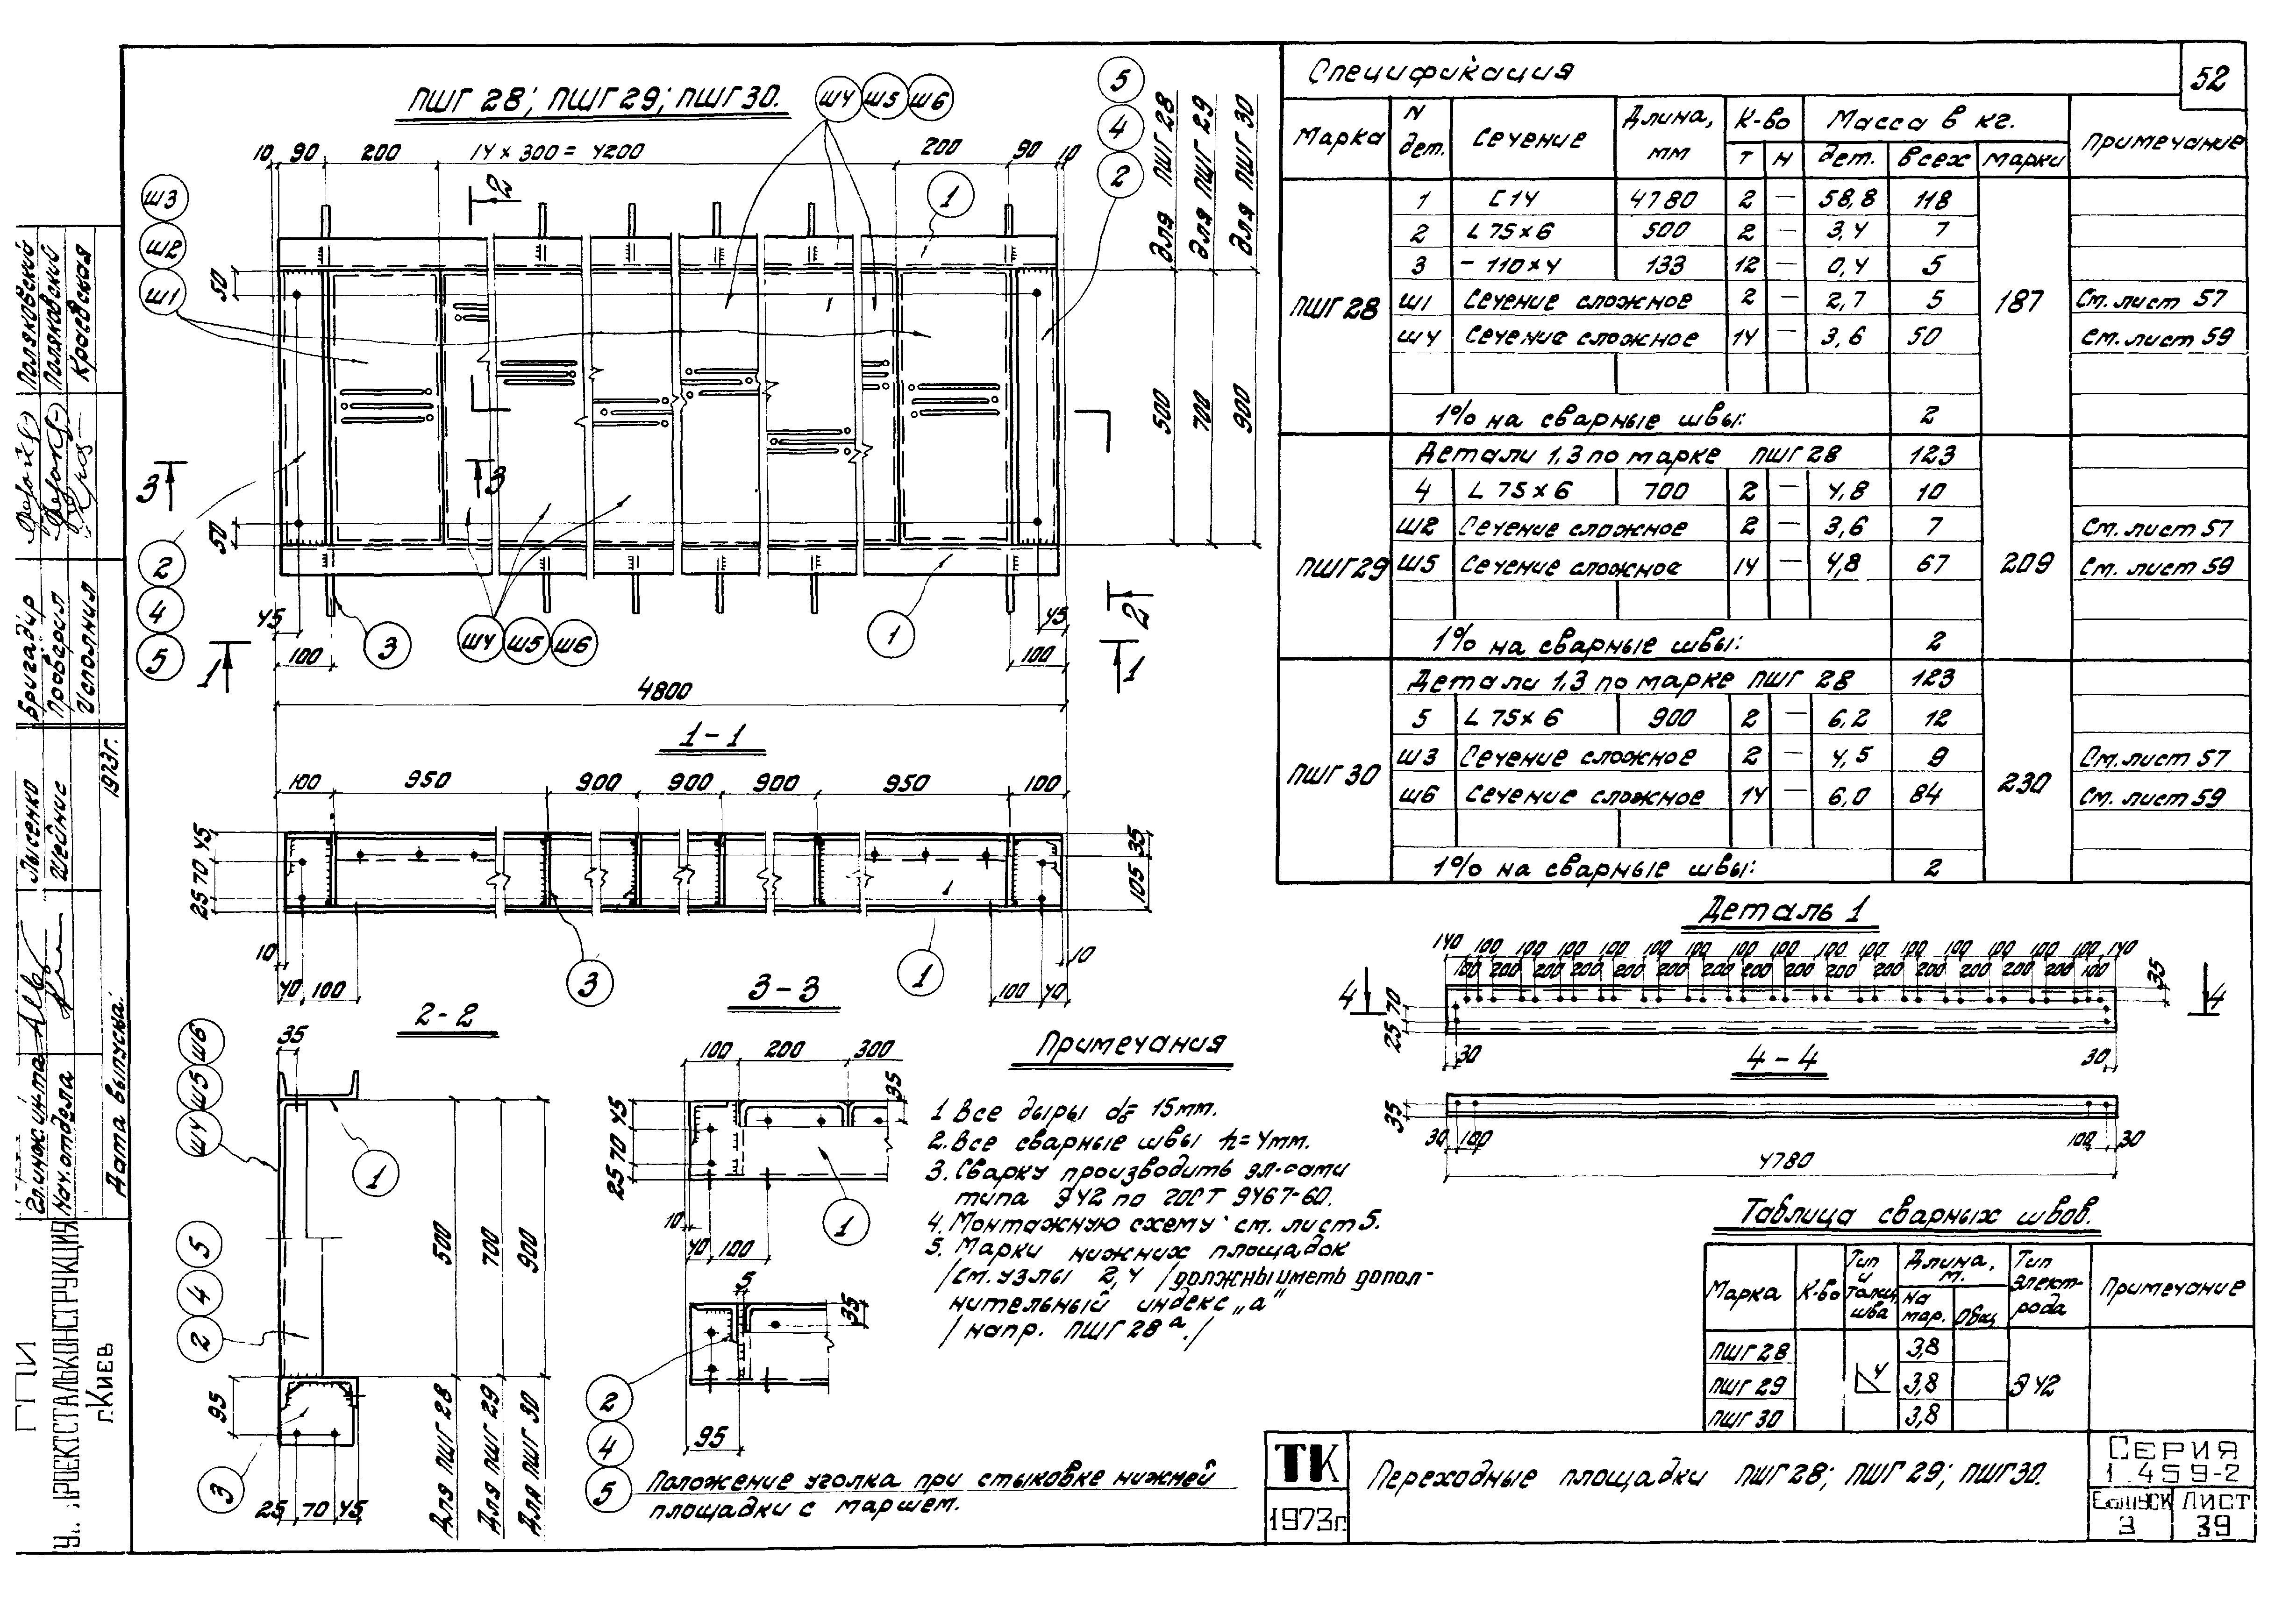 52
ПШГ 28; ПШГ 29; ПШГ 30.
Ш4 Ш5 Ш6
5
4
2
10 90 200 14 × 300 = 4200 200 90 10
Ш3
Ш2
Ш1
1
2
для ПШГ 28
для ПШГ 29
для ПШГ 30
50
500
700
900
3
3
50
2
4
5
45
100
3
Ш4 Ш5 Ш6
1
45
100
2
1
1
4800
1-1
100 950 900 900 900 950 100
45
70
25
35
105
10
40 100
3
1
100 40
10
2-2
35
Ш6
Ш5
Ш4
1
5
4
2
500
700
900
95
3
25 70 45
Для ПШГ 28
Для ПШГ 29
Для ПШГ 30
3-3
100 200 300
35
45
70
25
1
10
40 100
5
35
2
4
5
95
Положение уголка при стыковке нижней
площадки с маршем.
Примечания
1 Все дыры d₀= 15мм.
2. Все сварные швы h=4мм.
3. Сварку производить эл-сами
типа Э42 по ГОСТ 9467-60.
4. Монтажную схему см. лист 5.
5. Марки нижних площадок
/см. узлы 2,4 /должны иметь допол-
нительный индекс „а"
/напр. ПШГ 28ᵃ./
Спецификация
Марка N дет. Сечение Длина, мм К-во Масса в кг. Примечание
т н дет. всех марки
ПШГ 28 187
1 [14 4780 2 — 58,8 118
2 L 75×6 500 2 — 3,4 7
3 - 110×4 133 12 — 0,4 5
Ш1 Сечение сложное 2 — 2,7 5 См. лист 57
Ш4 Сечение сложное 14 — 3,6 50 См. лист 59
1% на сварные швы: 2
ПШГ 29 209
Детали 1,3 по марке ПШГ 28 123
4 L 75×6 700 2 — 4,8 10
Ш2 Сечение сложное 2 — 3,6 7 См. лист 57
Ш5 Сечение сложное 14 — 4,8 67 См. лист 59
1% на сварные швы: 2
ПШГ 30 230
Детали 1,3 по марке ПШГ 28 123
5 L 75×6 900 2 — 6,2 12
Ш3 Сечение сложное 2 — 4,5 9 См. лист 57
Ш6 Сечение сложное 14 — 6,0 84 См. лист 59
1% на сварные швы: 2
Деталь 1
140 100 100 100 100 100 100 100 100 100 100 100 100 100 100 100 140
100 200 200 200 200 200 200 200 200 200 200 200 200 200 100
4
4
35
70
25
30
30
4-4
35
30 100
100 30
4780
Таблица сварных швов.
Марка К-во Тип и толщ. шва Длина, м. Тип электрода Примечание
на мар. Общ
ПШГ 28 3,8
ПШГ 29 4 3,8 Э42
ПШГ 30 3,8
ТК
1973г
Переходные площадки ПШГ 28; ПШГ 29; ПШГ 30.
Серия
1.459-2
Выпуск
3
Лист
39
Бригадир Поляковский
Проверил Поляковский
Исполнил Краевская
Гл.инж.ин-та Лысенко
Нач.отдела Шейнис
Дата выпуска: 1973г.
ГПИ
г.Киев